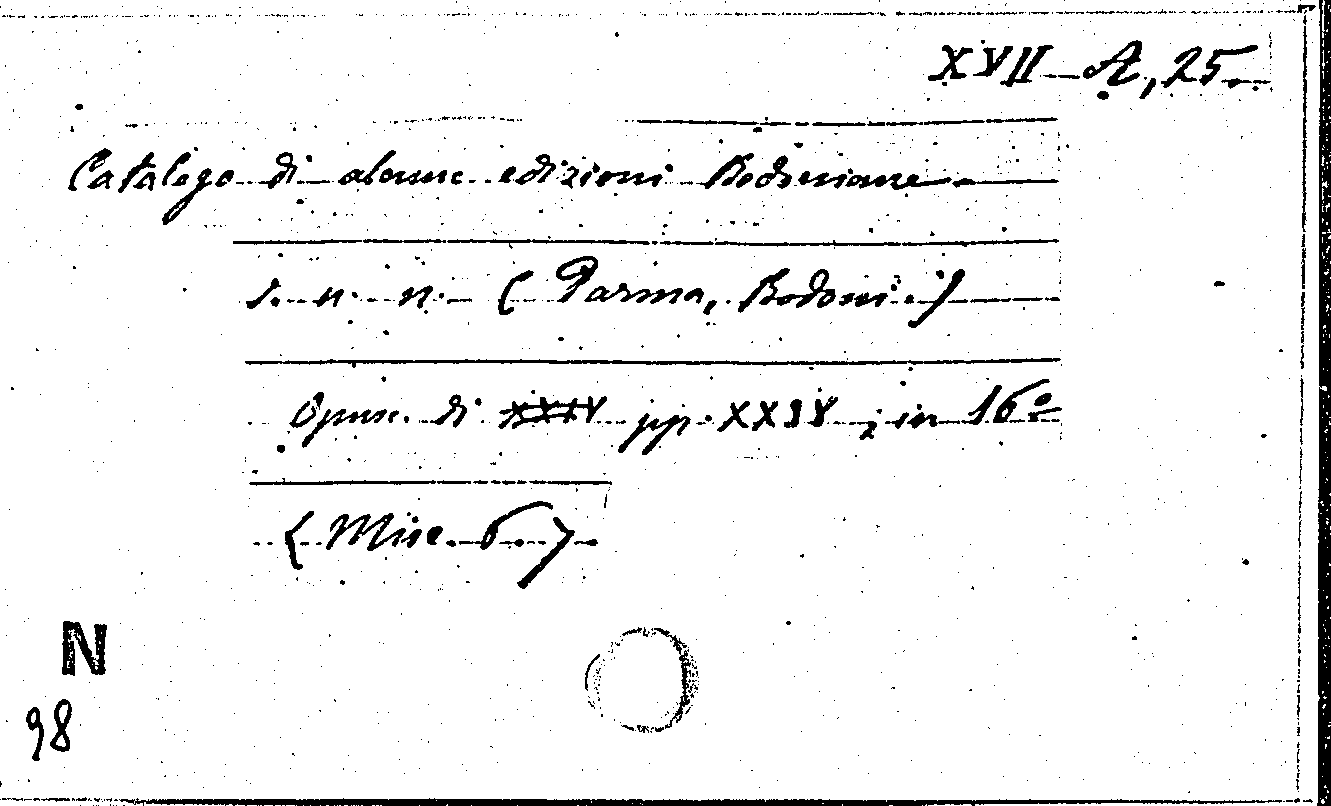 XVII A, 25
Catalogo di alcune edizioni Bodoniane
s. n. n. (Parma, Bodoni.)
Opusc. di XXIV pp. XXIV, in 16º
(Misc. 6.)
N
98